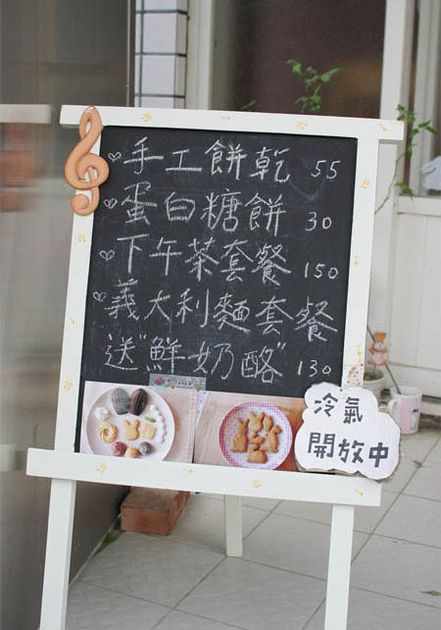 ♡手工餅乾 55
♡蛋白糖餅 30
♡下午茶套餐 150
♡義大利麵套餐
送"鮮奶酪" 130
冷氣
開放中